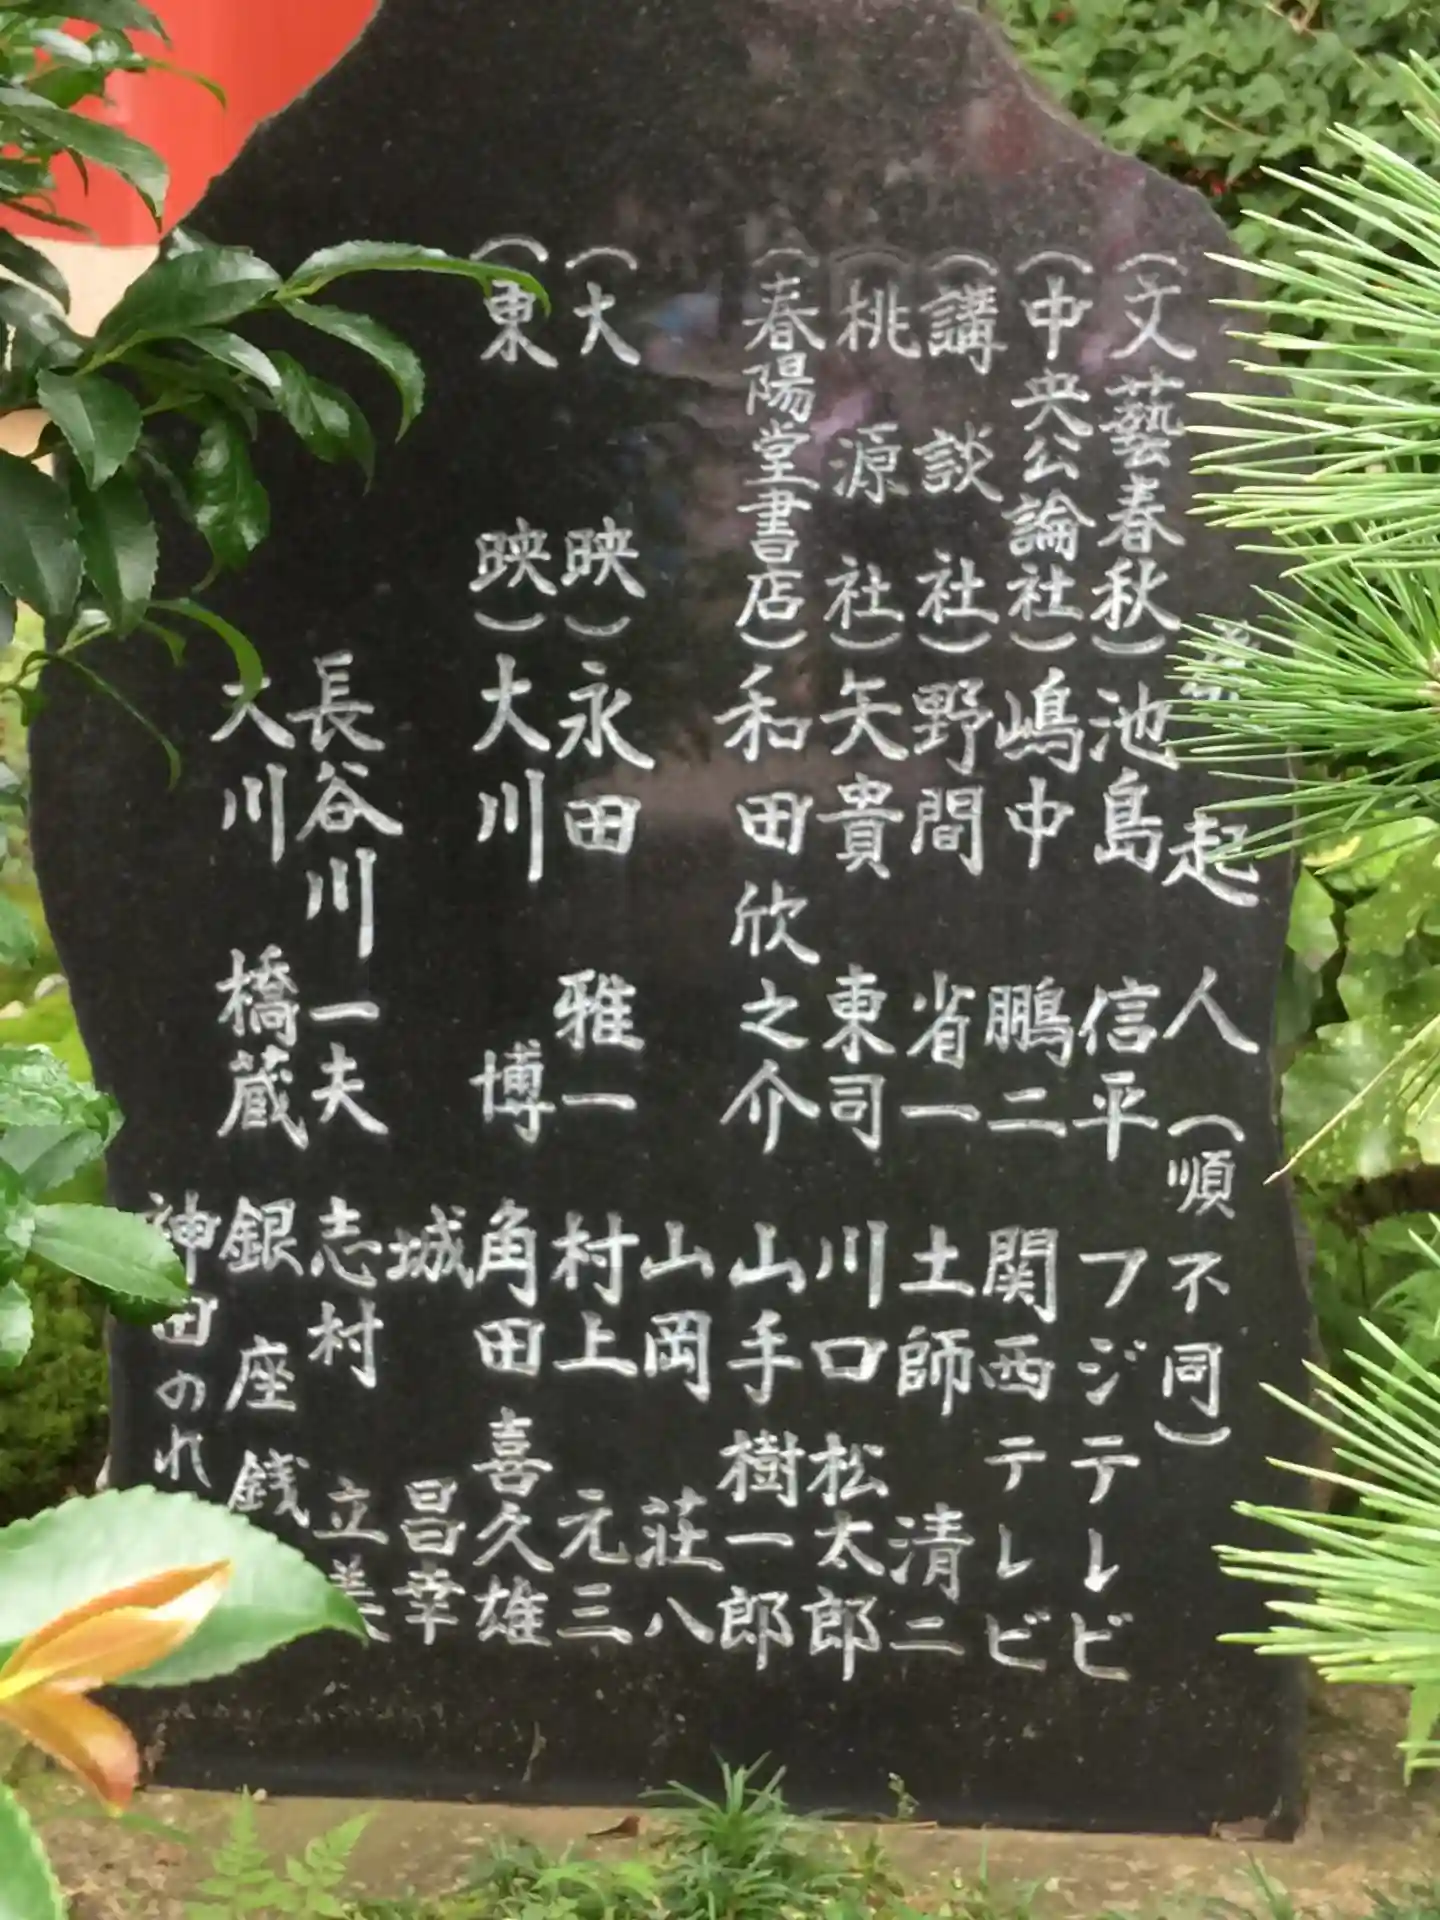 起人（順不同）
（文藝春秋）池島信平 フジテレビ
（中央公論社）嶋中鵬二 関西テレビ
（講談社）野間省一 土師清二
（桃源社）矢貴東司 川口松太郎
（春陽堂書店）和田欣之介 山手樹一郎
山岡荘八
（大映）永田雅一 村上元三
（東映）大川博 角田喜久雄
城昌幸
長谷川一夫 志村立美
大川橋蔵 銀座銭
神田のれ